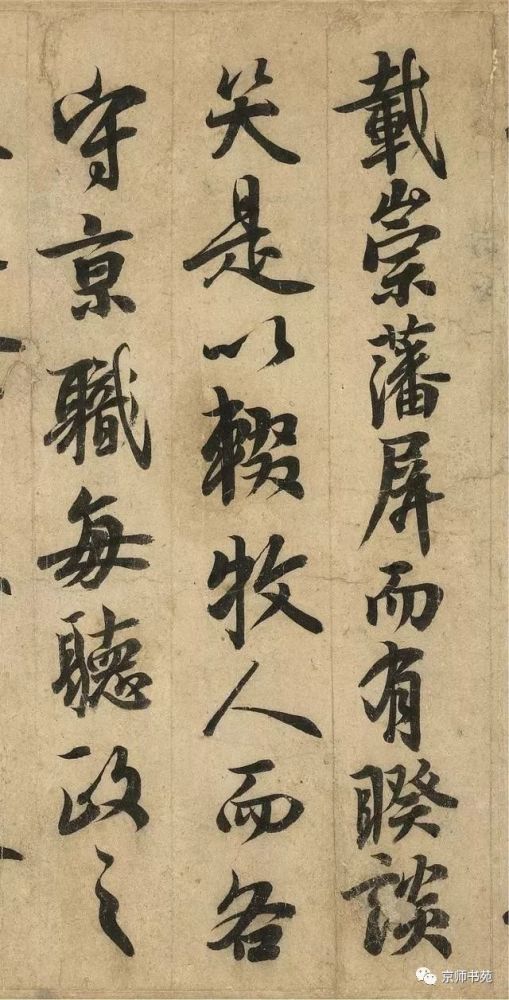 載崇藩屏而有睽談
笑是以輟牧人而各
守京職每聽政之
京师书苑